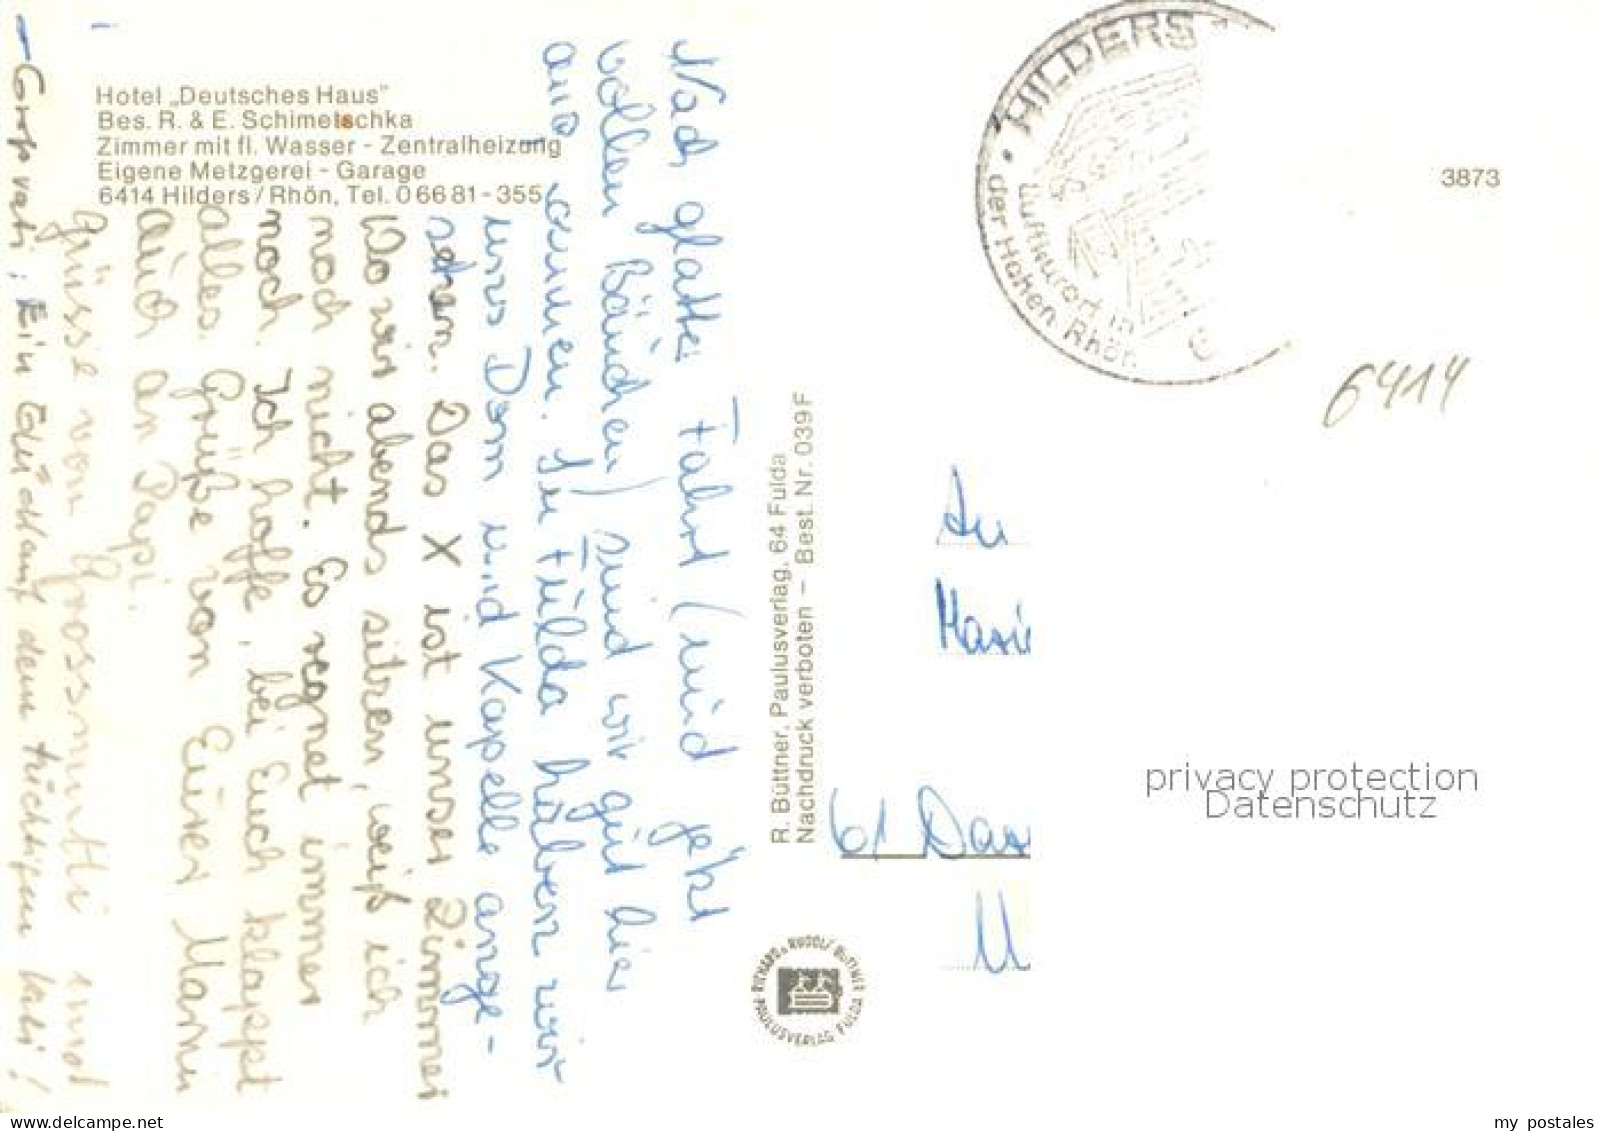 Hotel „Deutsches Haus"
Bes. R. & E. Schimetschka
Zimmer mit fl. Wasser - Zentralheizung
Eigene Metzgerei - Garage
6414 Hilders / Rhön, Tel. 0 66 81 - 355
Nach glatter Fahrt (und jetzt
vollen Bäuchen) sind wir gut hier
In Fulda haben wir
uns Dom und Kapelle ange-
sehen. Das X ist unser Zimmer
Wo wir abends sitzen, weiß ich
noch nicht. Es regnet immer
noch. Ich hoffe, bei Euch klappt
alles. Grüße von Eurer Mama
auch an Papi.
Grüsse von Grossmutti und
Großvati; Ein dem tüchtigen
R. Büttner, Paulusverlag, 64 Fulda
Nachdruck verboten – Best. Nr. 039 F
RICHARD u. RUDOLF BÜTTNER
PAULUSVERLAG FULDA
HILDERS
Luftkurort in
der Hohen Rhön
3873
6414
An
61
privacy protection
Datenschutz
delcampe.net
my_postales